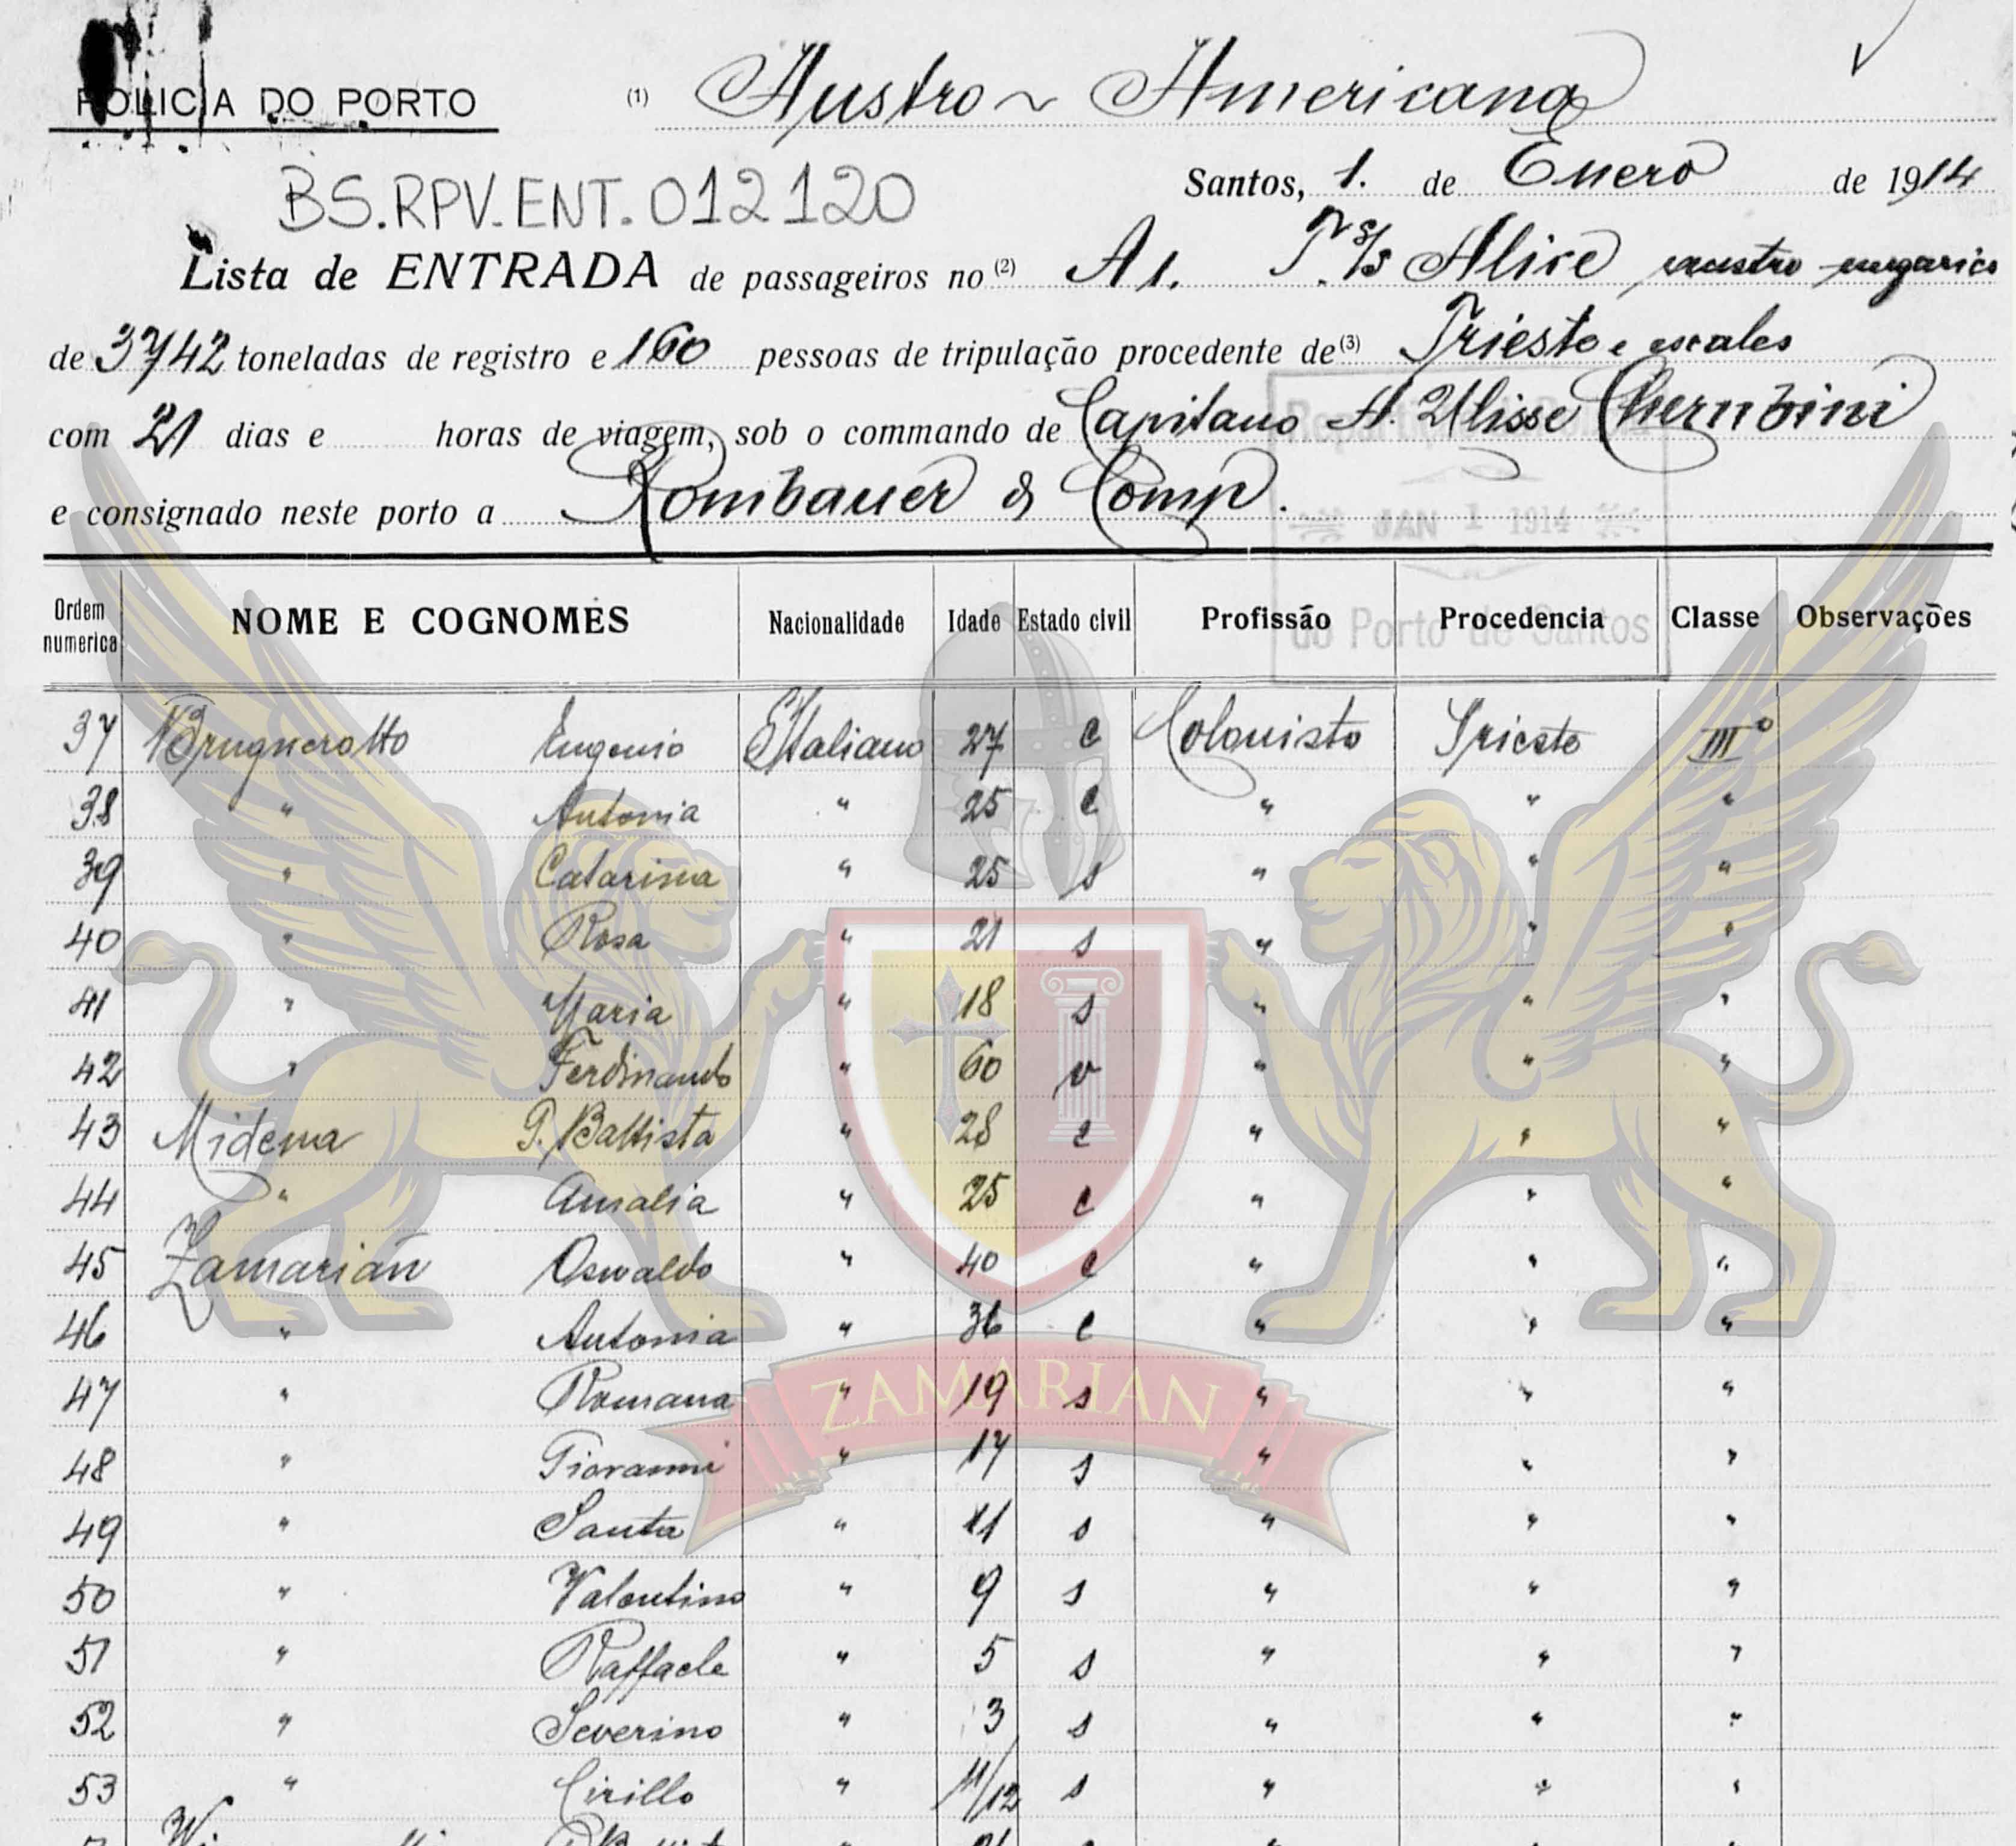 POLICIA DO PORTO (1) Austro ~ Americana
Santos, 1. de Enero de 1914
BS.RPV.ENT.012120
Lista de ENTRADA de passageiros no (2) A 1. Alice austro-ungarico
de 3742 toneladas de registro e 160 pessoas de tripulação procedente de (3) Trieste e escales
com 21 dias e horas de viagem, sob o commando de Capitano A. Ulisse Chernbini
e consignado neste porto a Rombauer & Comp.
JAN 1 1914
do Porto de Santos
Ordem numerica NOME E COGNOMES Nacionalidade Idade Estado civil Profissão Procedencia Classe Observações
37 Brugnerotto Eugenio Italiano 27 c Colonisto Trieste III°
38 " Antonia " 25 c " " "
39 " Catarina " 25 s " " "
40 " Rosa " 21 s " " "
41 " Maria " 18 s " " "
42 " Ferdinando " 60 v " " "
43 Midena G. Battista " 28 c " " "
44 " Amalia " 25 c " " "
45 Zamarian Oswaldo " 40 c " " "
46 " Antonia " 36 c " " "
47 " Romana " 19 s " " "
48 " Giovanni " 17 s " " "
49 " Santa " 11 s " " "
50 " Valentino " 9 s " " "
51 " Raffaele " 5 s " " "
52 " Severino " 3 s " " "
53 " Cirillo " 11/12 s " " "
ZAMARIAN